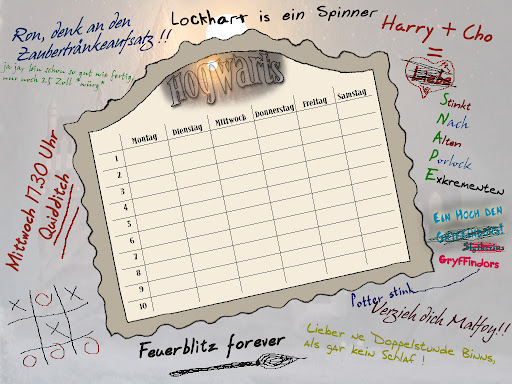 Ron, denk an den
Zaubertränkeaufsatz!!
ja ja, bin schon so gut wie fertig,
nur noch 25 Zoll *würg*
Lockhart is ein Spinner
Harry + Cho
=
Liebe
Stinkt
Nach
Alten
Porlock
Exkrementen
Hogwarts
Montag Dienstag Mittwoch Donnerstag Freitag Samstag
1
2
3
4
5
6
7
8
9
10
Mittwoch 17.30 Uhr
Quidditch
EIN HOCH DEN
Slytherins
Gryffindors
X O
X O X
O O X
Potter stink
Verzieh dich Malfoy!!
Feuerblitz forever
Lieber ne Doppelstunde Binns,
als gar kein Schlaf!